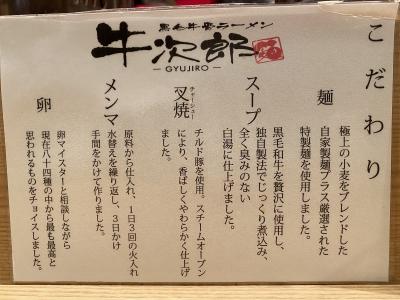 こだわり
黒毛牛骨ラーメン
牛次郎
麺
— GYUJIRO —
麺
極上の小麦をブレンドした
自家製麺プラス厳選された
特製麺を使用しました。
スープ
黒毛和牛を贅沢に使用し、
独自製法でじっくり煮込み、
全く臭みのない
白湯に仕上げました。
チャーシュー
叉焼
チルド豚を使用。スチームオーブン
により、香ばしくやわらかく仕上げ
ました。
メンマ
原料から仕入れ、1日3回の火入れ
水替えを繰り返し、3日かけ
手間をかけて作りました。
卵
卵マイスターと相談しながら
現在八十四種の中から最も最高と
思われるものをチョイスしました。